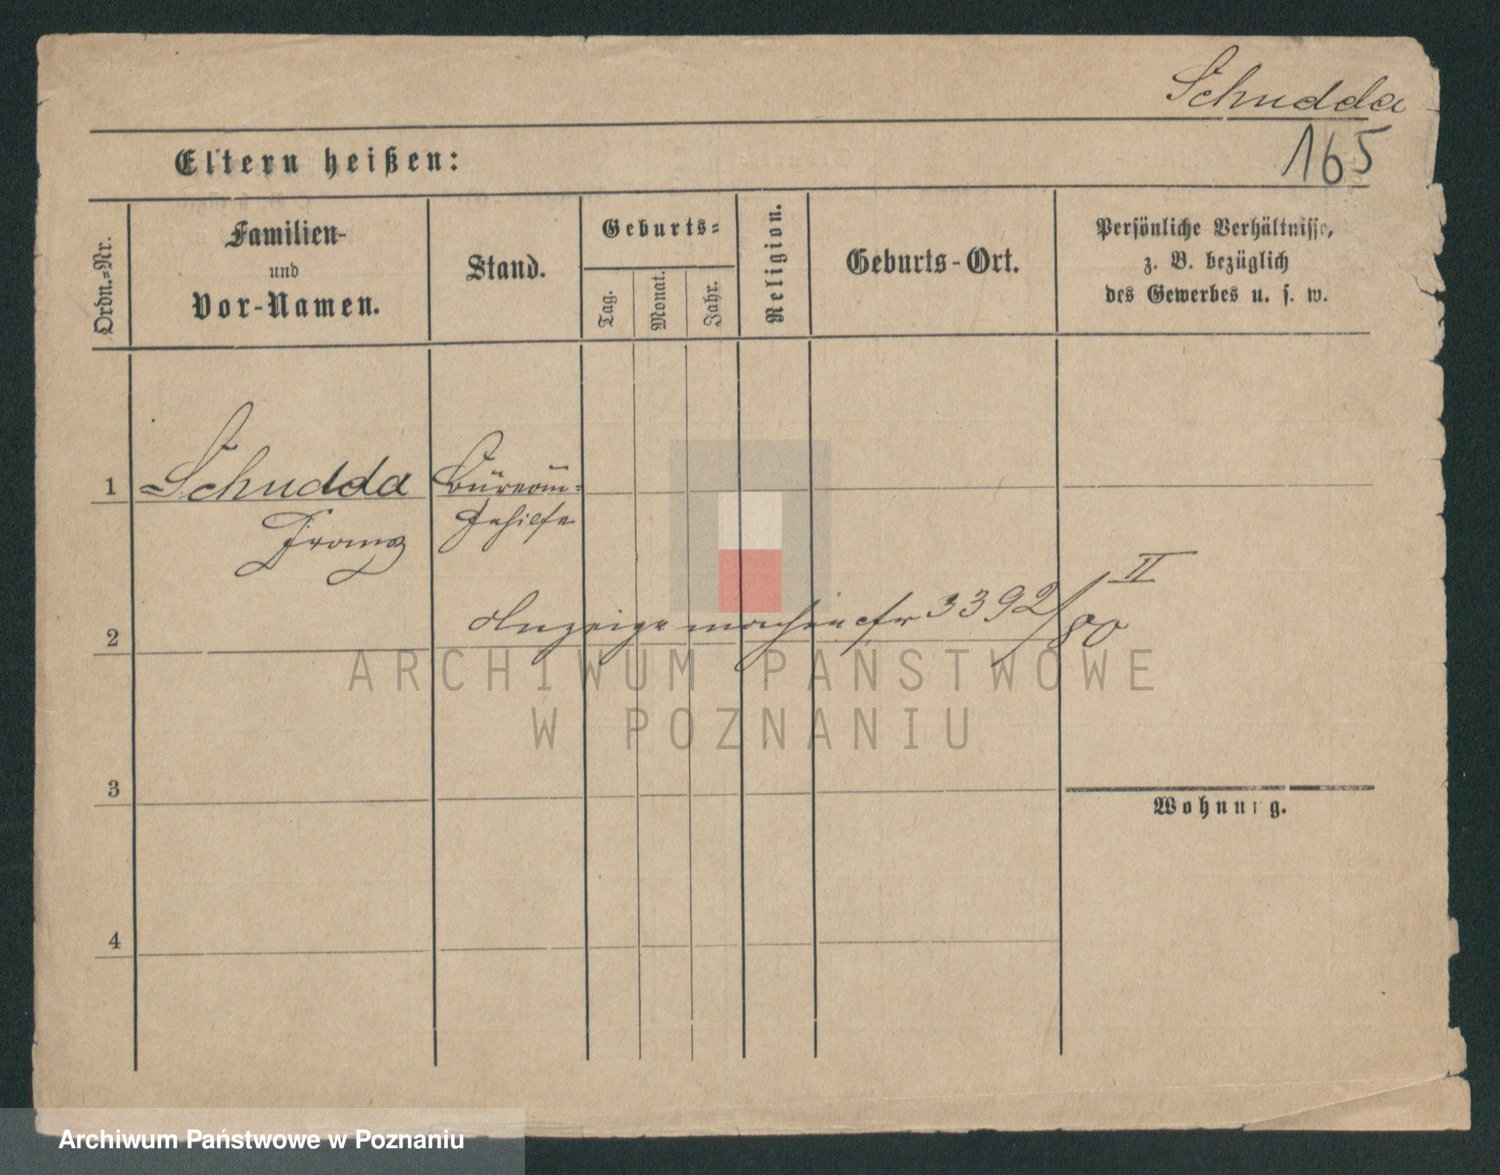 Schudda
165
Eltern heißen:
Ordn.=Nr.
Familien-
und
Vor-Namen.
Stand.
Geburts=
Tag.
Monat.
Jahr.
Religion.
Geburts-Ort.
Persönliche Verhältnisse,
z. B. bezüglich
des Gewerbes u. s. w.
1
Schudda
Franz
Büreau=
Gehilfe
2
Anzeige machen cfr 3392/80 II
ARCHIWUM PAŃSTWOWE
W POZNANIU
3
Wohnung.
4
Archiwum Państwowe w Poznaniu